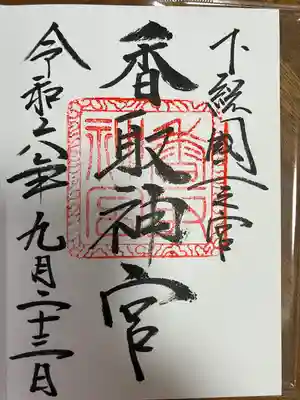 下総國一之宮
香取神宮
令和六年九月二十三日